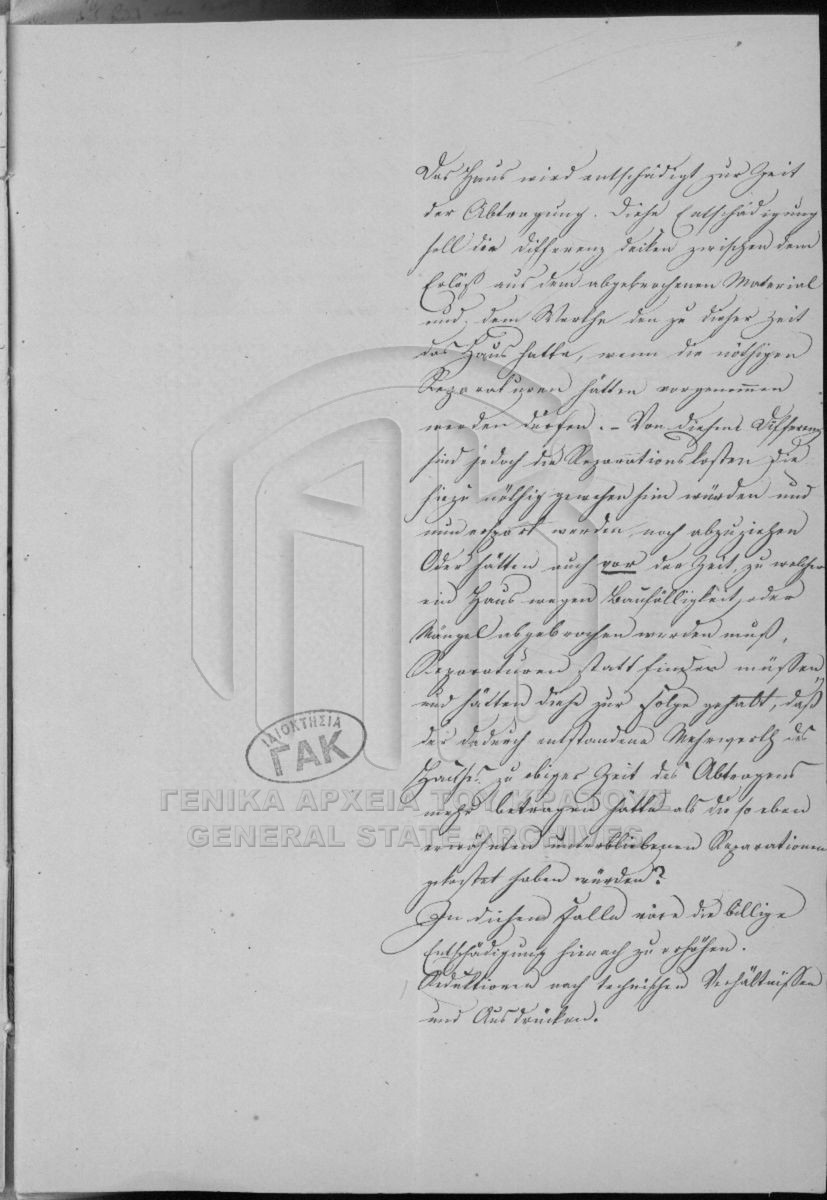 Das Haus wird entschädigt zur Zeit
der Abtragung. Diese Entschädigung
soll die Differenz decken zwischen dem
Erlöß aus dem abgebrochenen Material
und, dem Werthe den zu dieser Zeit
das Haus hatte, wenn die nöthigen
Reparaturen hätten vorgenommen
werden dürfen. – Von dieser Differenz
sind jedoch die Reparationskosten die
hiezu nöthig gewesen sein würden und
nun erspart werden, noch abzuziehen
Oder hätten auch vor der Zeit, zu welcher
ein Haus wegen Baufälligkeit, oder
Mängel abgebrochen werden muß,
Reparaturen statt finden müssen
und hätten diese zur Folge gehabt, daß
der dadurch entstandene Mehrwerth des
Hauses zu obiger Zeit des Abtragens
mehr betragen hätte als die so eben
erwähnten unterbliebenen Reparationen
gekostet haben würden?
In diesem Falle wäre die billige
Entschädigung hienach zu erhöhen.
Reduktionen nach technischen Verhältnissen
und Ausdrücken.
ΙΔΙΟΚΤΗΣΙΑ
ΓΑΚ
ΓΕΝΙΚΑ ΑΡΧΕΙΑ ΤΟΥ ΚΡΑΤΟΥΣ
GENERAL STATE ARCHIVES